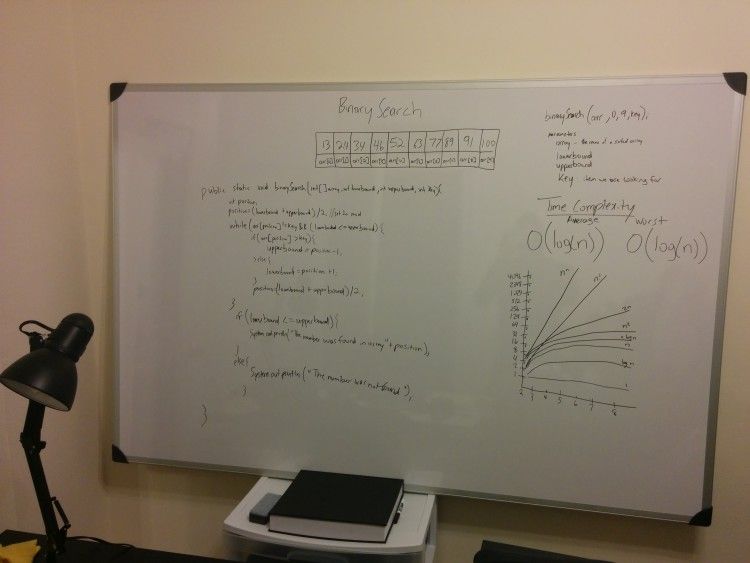 Binary Search
13 24 34 46 52 63 77 89 91 100
arr[0] arr[1] arr[2] arr[3] arr[4] arr[5] arr[6] arr[7] arr[8] arr[9]
public static void binarySearch(int[] array, int lowerbound, int upperbound, int key){
int position;
position = (lowerbound + upperbound)/2;
while(array[position] != key && (lowerbound <= upperbound)){
if(array[position] > key){
upperbound = position - 1;
}else{
lowerbound = position + 1;
}
position = (lowerbound + upperbound)/2;
}
if (lowerbound <= upperbound){
System.out.println("The number was found in array" + position);
}
else{
System.out.println("The number was not found");
}
}
binarySearch(arr, 0, 9, key);
parameters
array - the name of a sorted array
lowerbound
upperbound
key item we are looking for
Time Complexity
Average Worst
O(log(n)) O(log(n))
4096
512
256
128
64
32
16
8
4
2
1
n
1
2 3 4 5 6 7 8